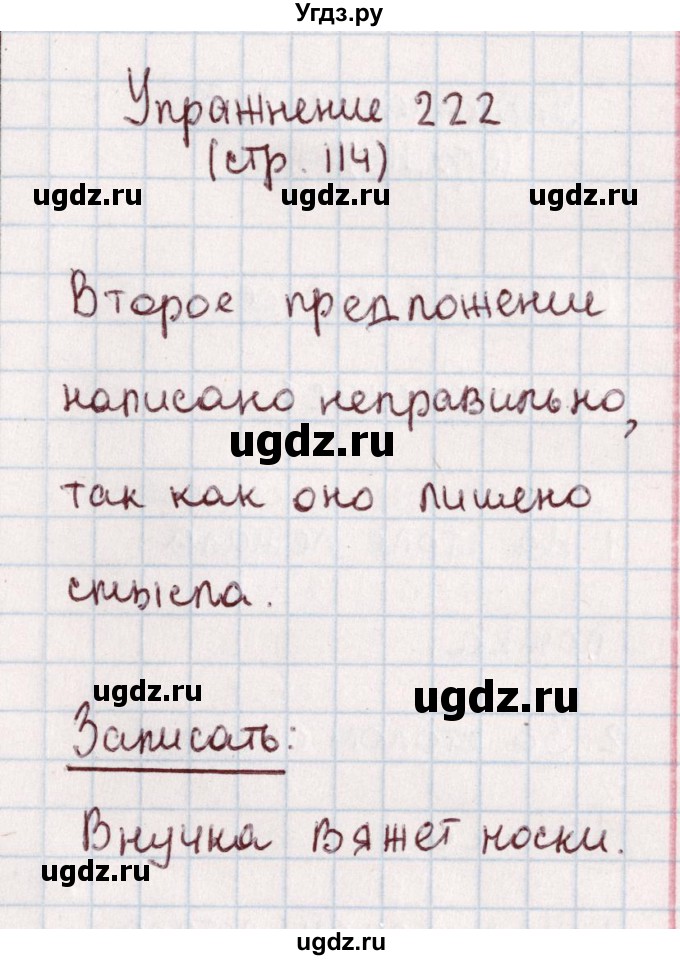 Угдз.ру
Упражнение 222
(стр. 114)
ugdz.ru ugdz.ru ugdz.ru
Второе предложение
написано неправильно,
ugdz.ru
так как оно лишено
смысла.
ugdz.ru ugdz.ru
Записать:
Внучка вяжет носки.
ugdz.ru
ugdz.ru